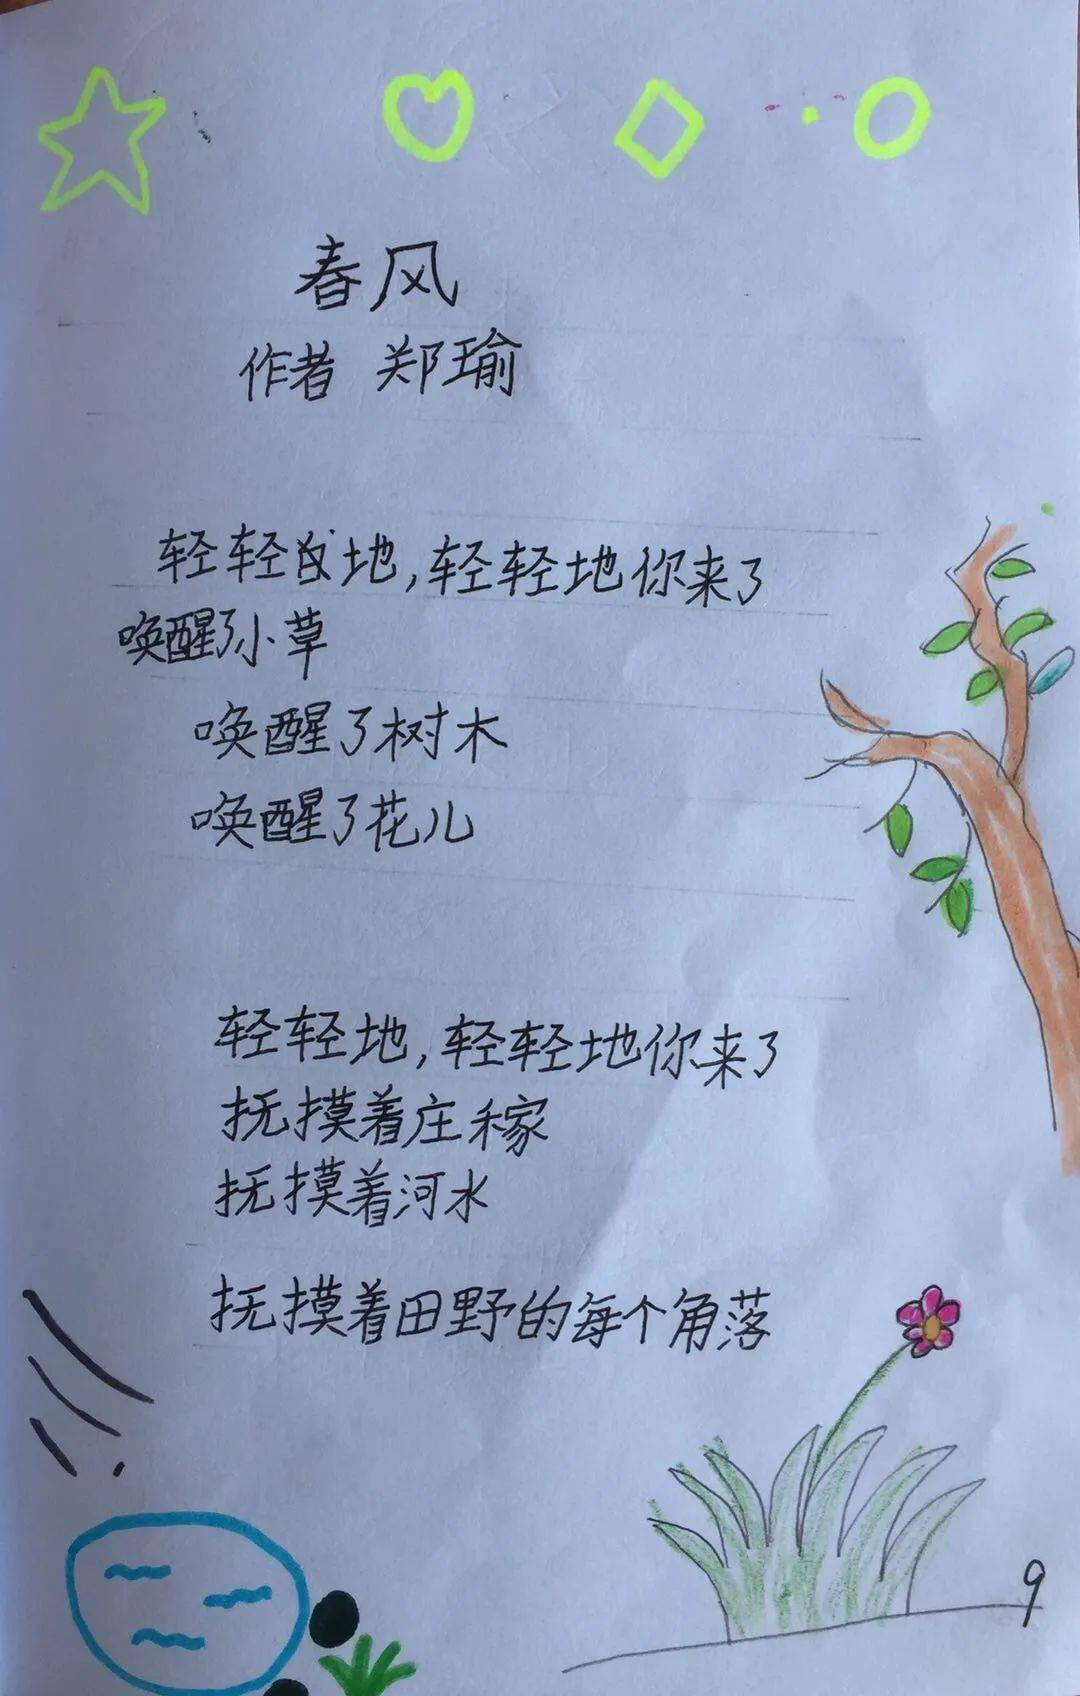 春风
作者 郑瑜
轻轻地,轻轻地你来了
唤醒了小草
唤醒了树木
唤醒了花儿
轻轻地,轻轻地你来了
抚摸着庄稼
抚摸着河水
抚摸着田野的每个角落
9